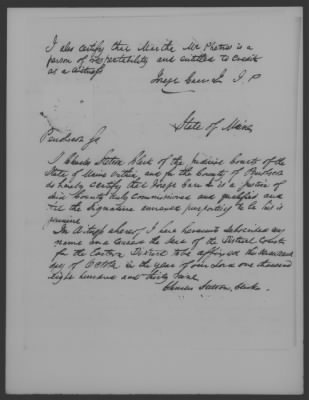 I also certify that Martha Mc Phetres is a
person of respectability and entitled to credit
as a witness
Joseph Carr Jr J. P
State of Maine
Penobscot Ss
I Charles Stetson Clerk of the Judicial Courts of the
State of Maine within and for the County of Penobscot
do hereby certify that Joseph Carr Jr is a Justice of
said County duly commissioned and qualified and
that the signature annexed purporting to be his is
genuine
In witness whereof, I have hereunto subscribed my
name and caused the seal of the District Courts
for the Eastern District to be affixed the
day of in the year of our Lord one thousand
Eight hundred and thirty nine
Charles Stetson, Clerk.